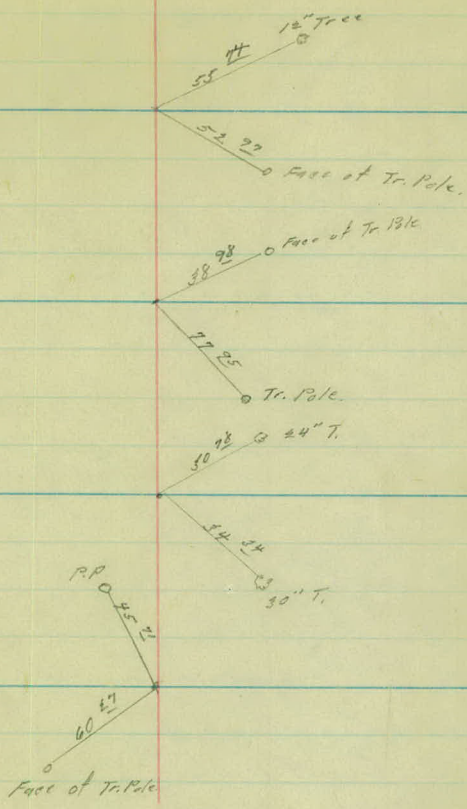 12" Tree
55 74
52 97
Face of Tr. Pole.
Face of Tr. Pole
38 98
77 95
Tr. Pole.
24" T.
30 78
34 34
30" T.
P.P
45 71
60 47
Face of Tr. Pole